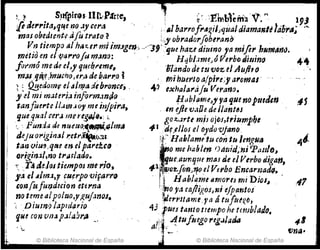 Suspiros III. Parte,
se derrita, que no ay cera
mas obediente à su trato?
Vn tiempo al hazer mi imagen
metiò en el barro su mano:
formò me de el, y quebreme,
mas que mucho, era de barro?
Quedome el alma de bronce,
y el mi materia informando
tan fuerte llama me inspira,
que qual cera me regala.
Funda de nueuo alma
de su original retr
tan viua, que en el parezco
original, no traslado.
Ya de los tiempos me rio,
ya el alma, y cuerpo viparro
con su fundicion eterna
no teme al poluo, y gusanos.
Diuino lapidario
que con vna palabra
al
Emblema V.
193
al barro fragil, qual diamante labra,
obrador soberano
39 que haze diuino ya mi ser humano.
Hablame, ò Verbo diuino 44
Blando de tu voz el Austro
mi huerto aspire, y aromas
42 exhalarà su Verano.
Hablame, y ya que no pueden 45
en este valle de llantos
gozarte mis ojos, triumphe
41 de ellos el oydo vfano
Hablame tu con tu lengua 46
no me hablen Dauid, ni Paulo,
que aunque mas de el Verbo digan,
voz son, no el Verbo Encarnado.
Hablame amores mi Dios, 47
no ya castigos, ni espantos
derritame ya à tu fuego,
43 pues tanto tiempo he temblado.
A tu fuego regalada 48
vna
© Biblioteca Nacional de España
© Biblioteca Nacional de España